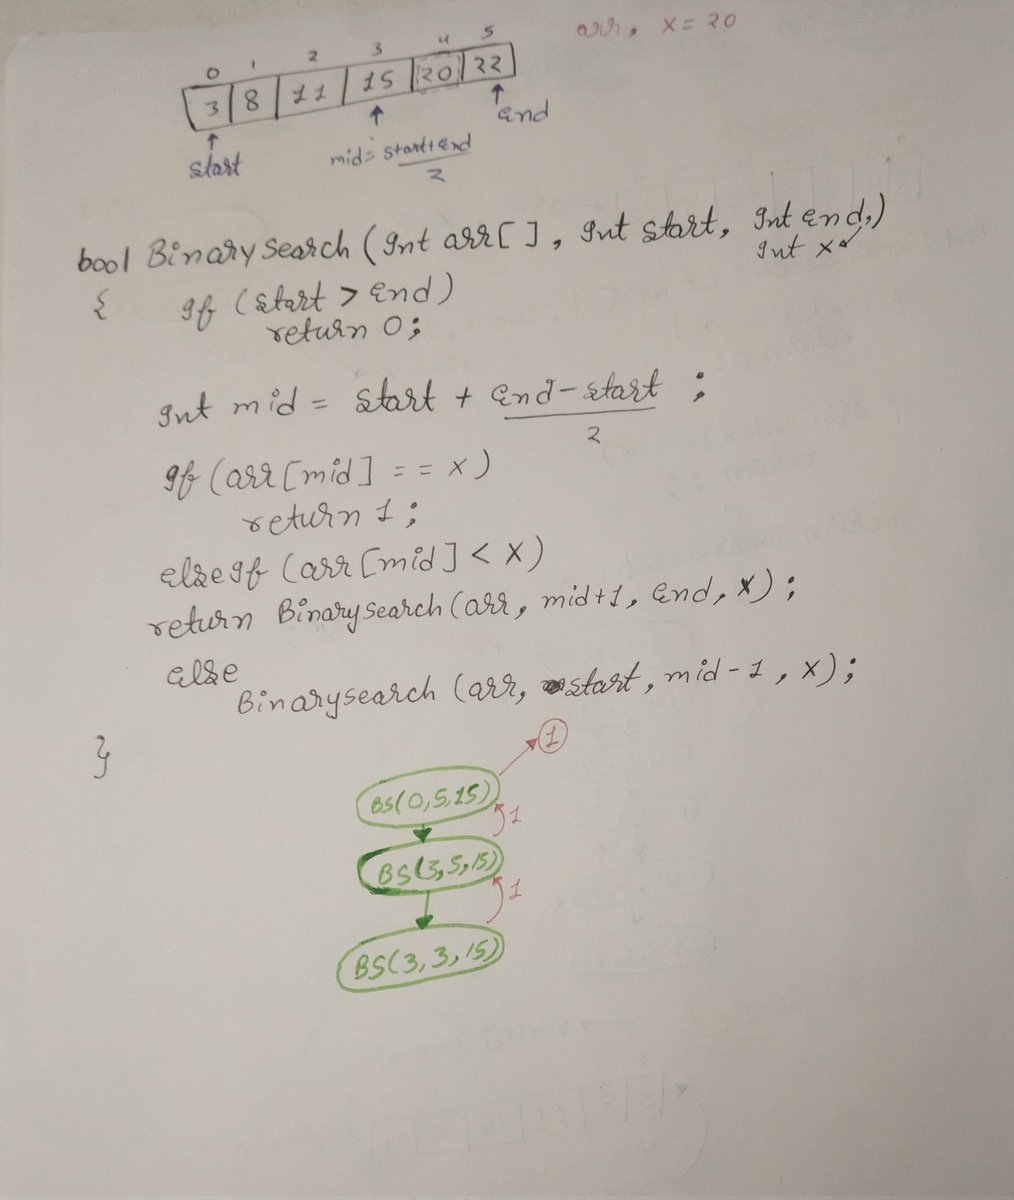 arr, x = 20
0 1 2 3 4 5
3 8 11 15 20 22
start
mid = start+end
2
end
bool Binarysearch (int arr[ ], int start, int end,)
int x
{ if (start > end)
return 0;
int mid = start + end - start ;
2
if (arr[mid] == x)
return 1;
else if (arr[mid] < x)
return Binarysearch(arr, mid+1, end, x);
else
Binarysearch (arr, start, mid-1, x);
}
1
BS(0,5,15)
1
BS(3,5,15)
1
BS(3,3,15)